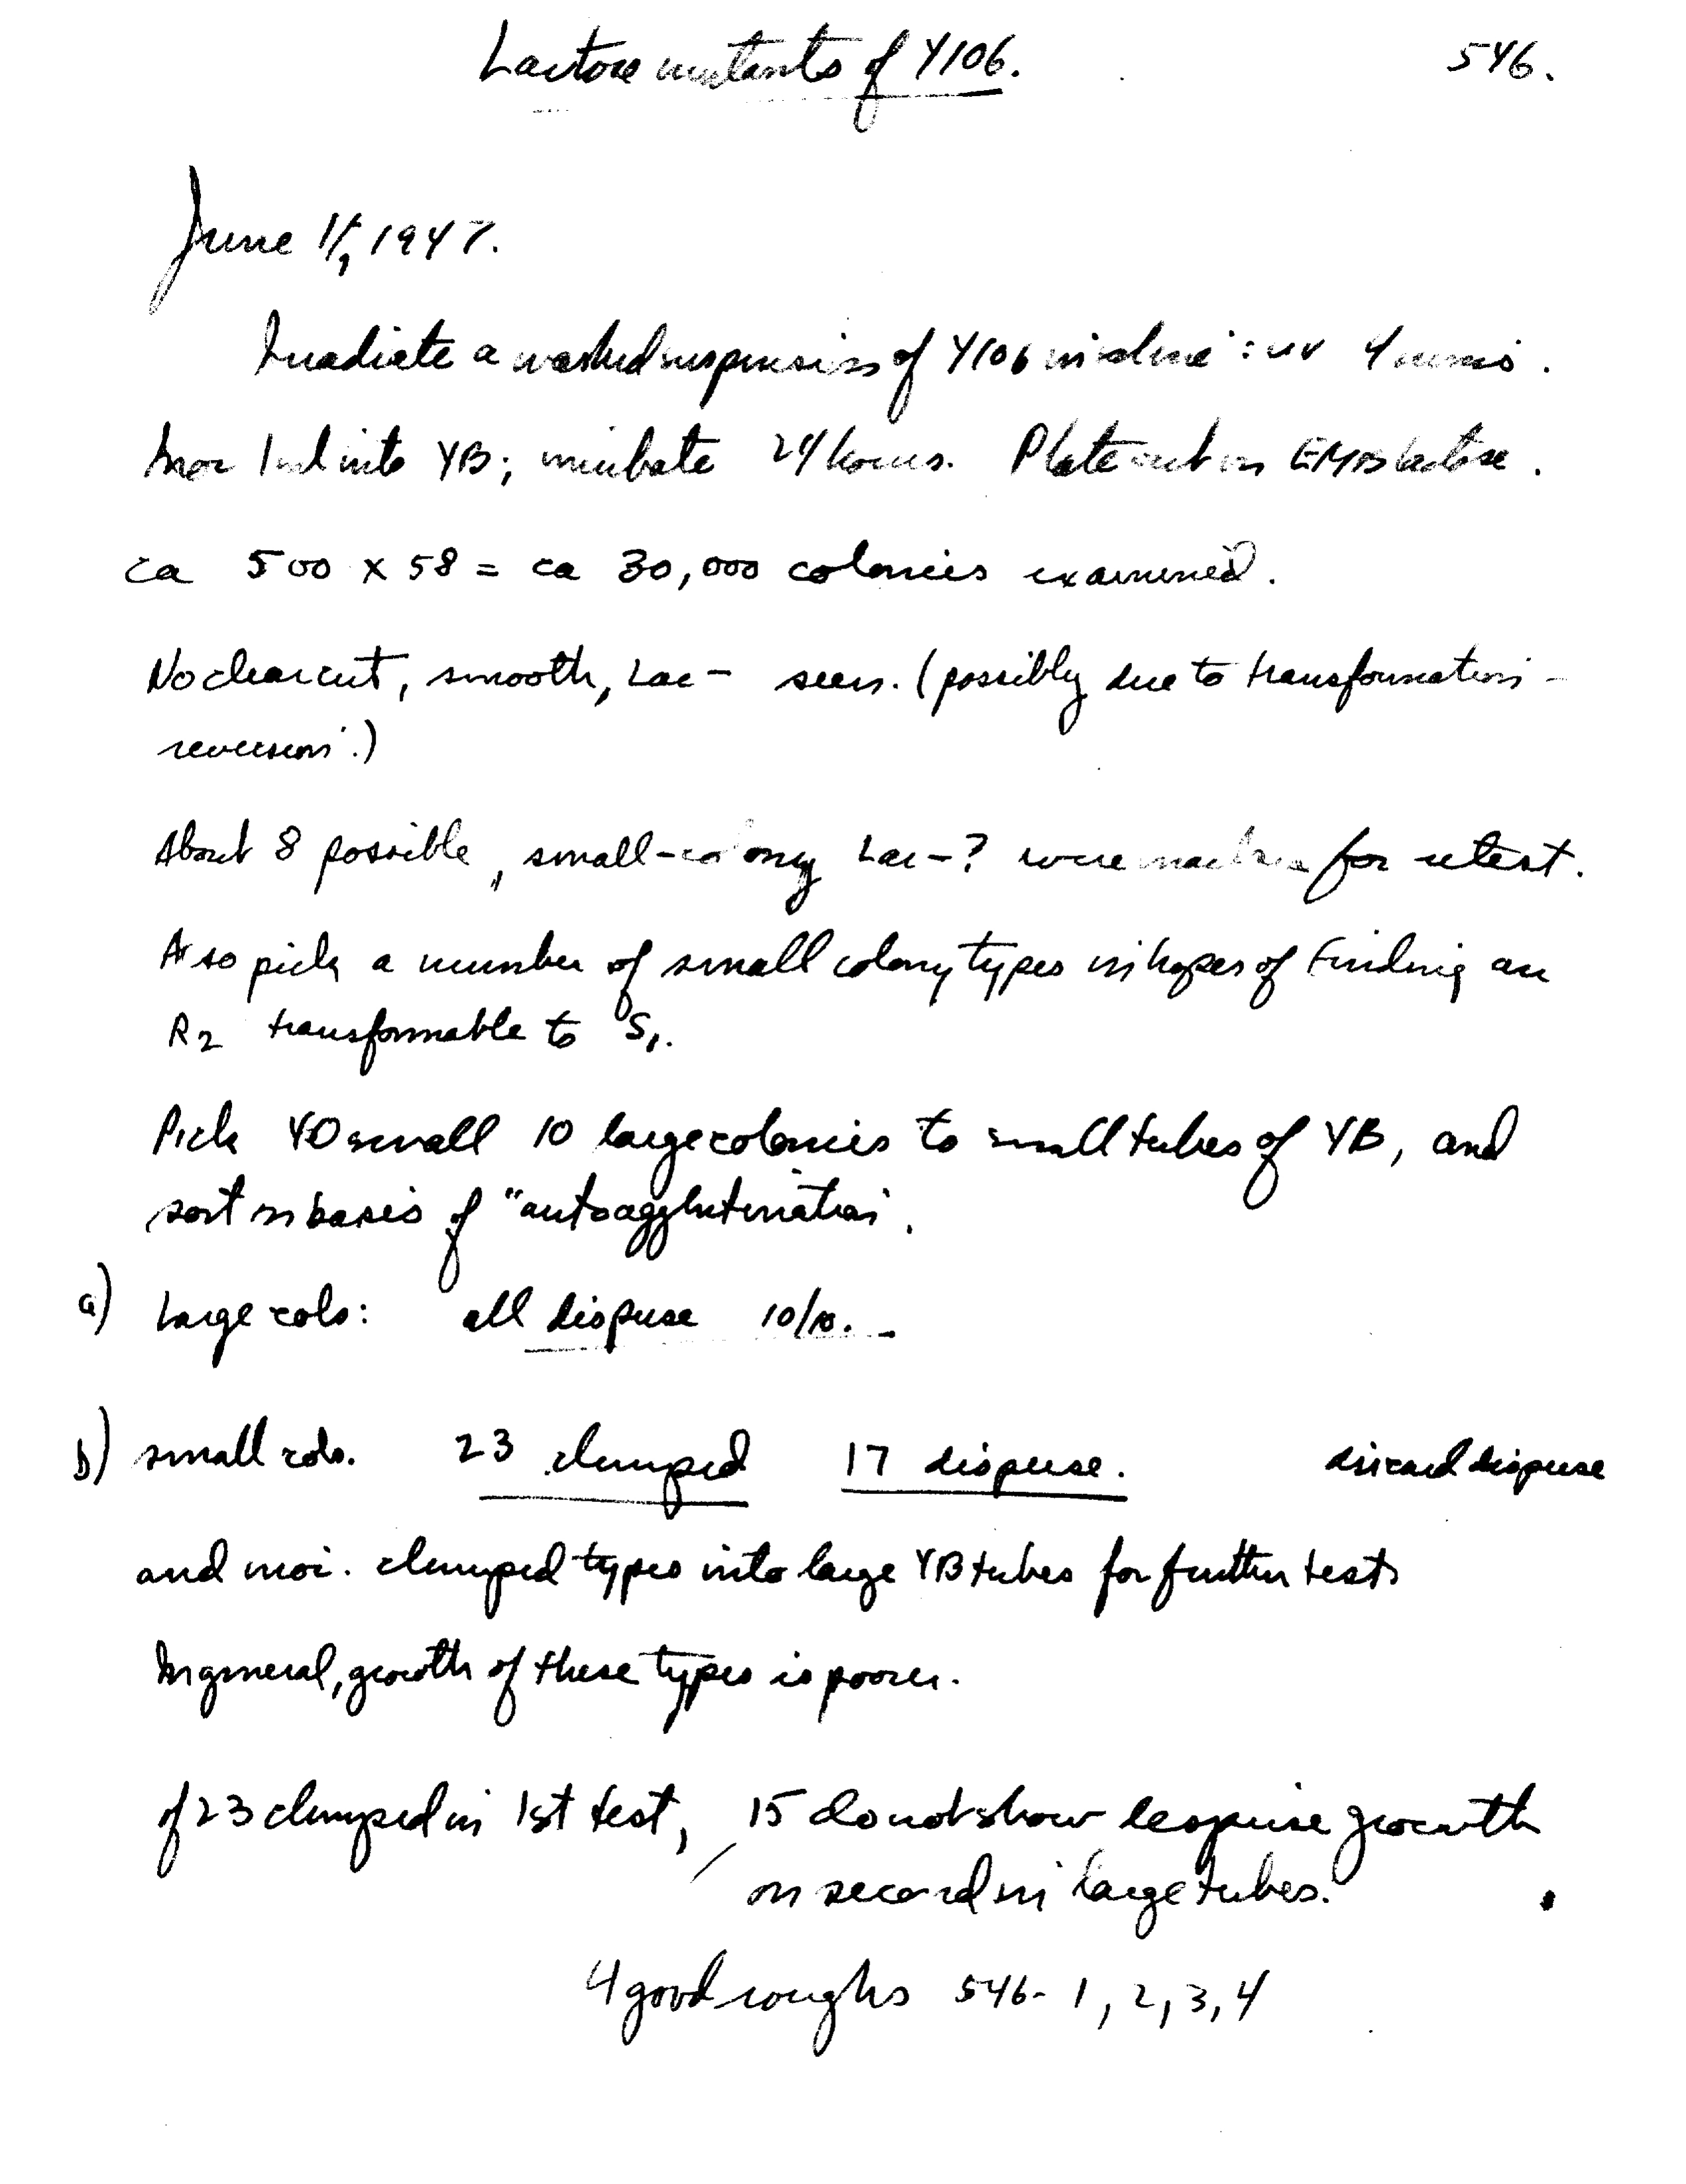 Lactose mutants of Y106. 546.
June 11, 1947.
Irradiate a washed suspension of Y106 in saline: uv 4 mins.
Inoc 1 ml into YB; incubate 24 hours. Plate out on EMB lactose.
ca 500 x 58 = ca 30,000 colonies examined.
No clearcut, smooth, Lac- seen. (possibly due to transformation-
reversion.)
About 8 possible, small-colony Lac-? were marked for retest.
Also pick a number of small colony types in hopes of finding an
R2 transformable to S1.
Pick 40 small 10 large colonies to small tubes of YB, and
sort on basis of "autoagglutination".
a) Large cols: all disperse 10/10.
b) small cols. 23 clumped 17 disperse. discard disperse
and inoc. clumped types into large YB tubes for further tests
In general, growth of these types is poorer.
of 23 clumped in 1st test, 15 do not show disperse growth
on second in large tubes.
4 good roughs 546- 1, 2, 3, 4